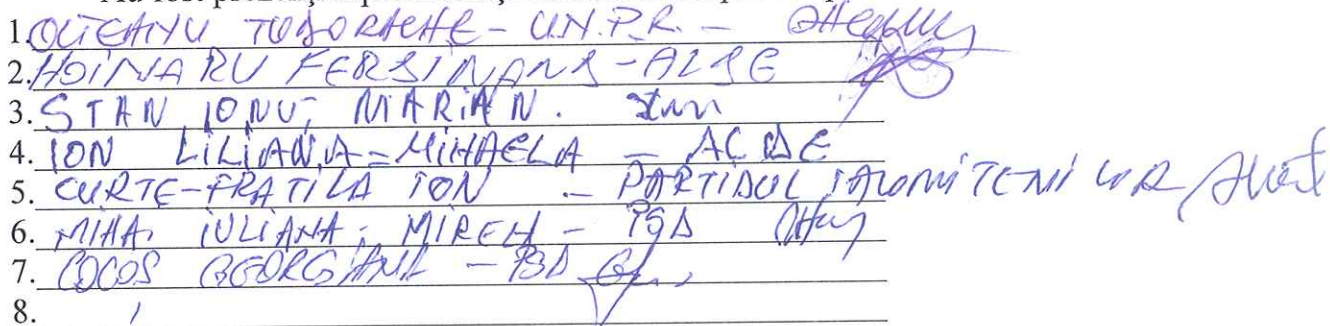 1. OLTEANU TUDORACHE - U.N.P.R. -
2. HOINARU FERDINAND - ALDE
3. STAN IONUȚ MARIAN.
4. ION LILIANA - MIHAELA - ALDE
5. CURTE-FRATILA ION - PARTIDUL IALOMITENILOR
6. MIHAI IULIANA, MIRELA - PSD
7. COCOȘ GEORGIANA - PSD
8.